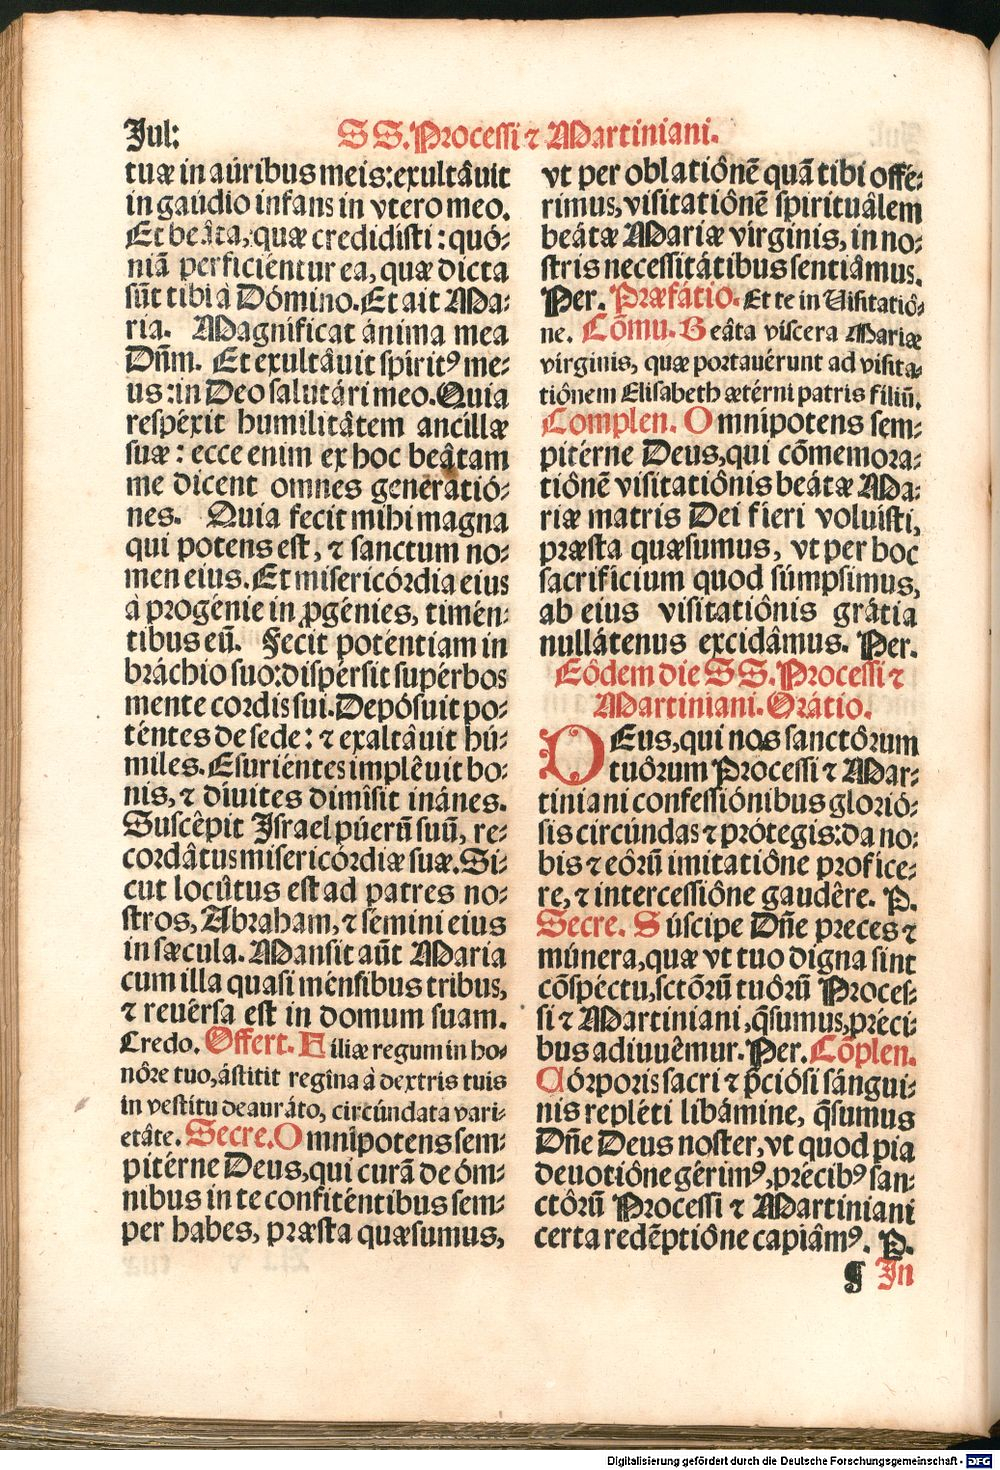 Jul:
SS. Processi ⁊ Martiniani.
tuæ in aúribus meis: exultâuit
in gaúdio infans in vtero meo.
Et beâta, quæ credidisti: quó⸗
niã perficiéntur ea, quæ dicta
sũt tibi à Dómino. Et ait Ma⸗
ria. Magnificat ánima mea
Dñm. Et exultâuit spiritꝰ me⸗
us: in Deo salutári meo. Quia
respéxit humilitâtem ancillæ
suæ: ecce enim ex hoc beâtam
me dicent omnes generatió⸗
nes. Quia fecit mihi magna
qui potens est, ⁊ sanctum no⸗
men eius. Et misericórdia eius
à progénie in ꝓgénies, timén⸗
tibus eũ. Fecit poténtiam in
bráchio suo: dispérsit supérbos
mente cordis sui. Depósuit po⸗
téntes de sede: ⁊ exaltâuit hú⸗
miles. Esuriéntes implêuit bo⸗
nis, ⁊ díuites dimîsit inánes.
Suscêpit Israel púerũ suũ, re⸗
cordâtus misericórdiæ suæ. Si⸗
cut locûtus est ad patres no⸗
stros, Abraham, ⁊ semini eius
in sæcula. Mansit aũt Maria
cum illa quasi ménsibus tribus,
⁊ reuêrsa est in domum suam.
Credo. Offert. Filiæ regum in ho⸗
nôre tuo, ástitit regîna à dextris tuis
in vestitu deauráto, circúndata vari⸗
etâte. Secre. Omnîpotens sem⸗
pitérne Deus, qui curã de óm⸗
nibus in te confiténtibus sem⸗
per habes, præsta quæsumus,
vt per oblatiônẽ quã tibi offé⸗
rimus, visitatiônẽ spirituâlem
beátæ Mariæ virginis, in no⸗
stris necessitátibus sentiâmus.
Per. Præfátio. Et te in Visitatiô⸗
ne. Cõmu. Beâta víscera Mariæ
virginis, quæ portauérunt ad visita⸗
tiônem Elisabeth ætérni patris filiũ.
Complen. Omnîpotens sem⸗
pitérne Deus, qui cõmemora⸗
tiônẽ visitatiônis beátæ Ma⸗
riæ matris Dei fieri voluîsti,
præsta quæsumus, vt per hoc
sacrifícium quod súmpsimus,
ab eius visitatiônis grátia
nullátenus excidâmus. Per.
Eôdem die SS. Processi ⁊
Martiniani. Orátio.
DEus, qui nos sanctôrum
tuôrum Processi ⁊ Mar⸗
tiniani confessiónibus glorió⸗
sis circúndas ⁊ prótegis: da no⸗
bis ⁊ eôrũ imitatiône profice⸗
re, ⁊ intercessiône gaudêre. P.
Secre. Súscipe Dñe preces ⁊
múnera, quæ vt tuo digna sint
cõspéctu, sctôrũ tuôrũ Proces⸗
si ⁊ Martiniani, q̃sumus, préci⸗
bus adiuuêmur. Per. Cõplen.
Córporis sacri ⁊ p̃ciósi sángui⸗
nis repléti libámine, q̃sumus
Dñe Deus noster, vt quod pia
deuotiône gérimꝰ, précibꝰ san⸗
ctôrũ Processi ⁊ Martiniani
certa redẽptiône capiâmꝰ. P.
¶ In
Digitalisierung gefördert durch die Deutsche Forschungsgemeinschaft - DFG